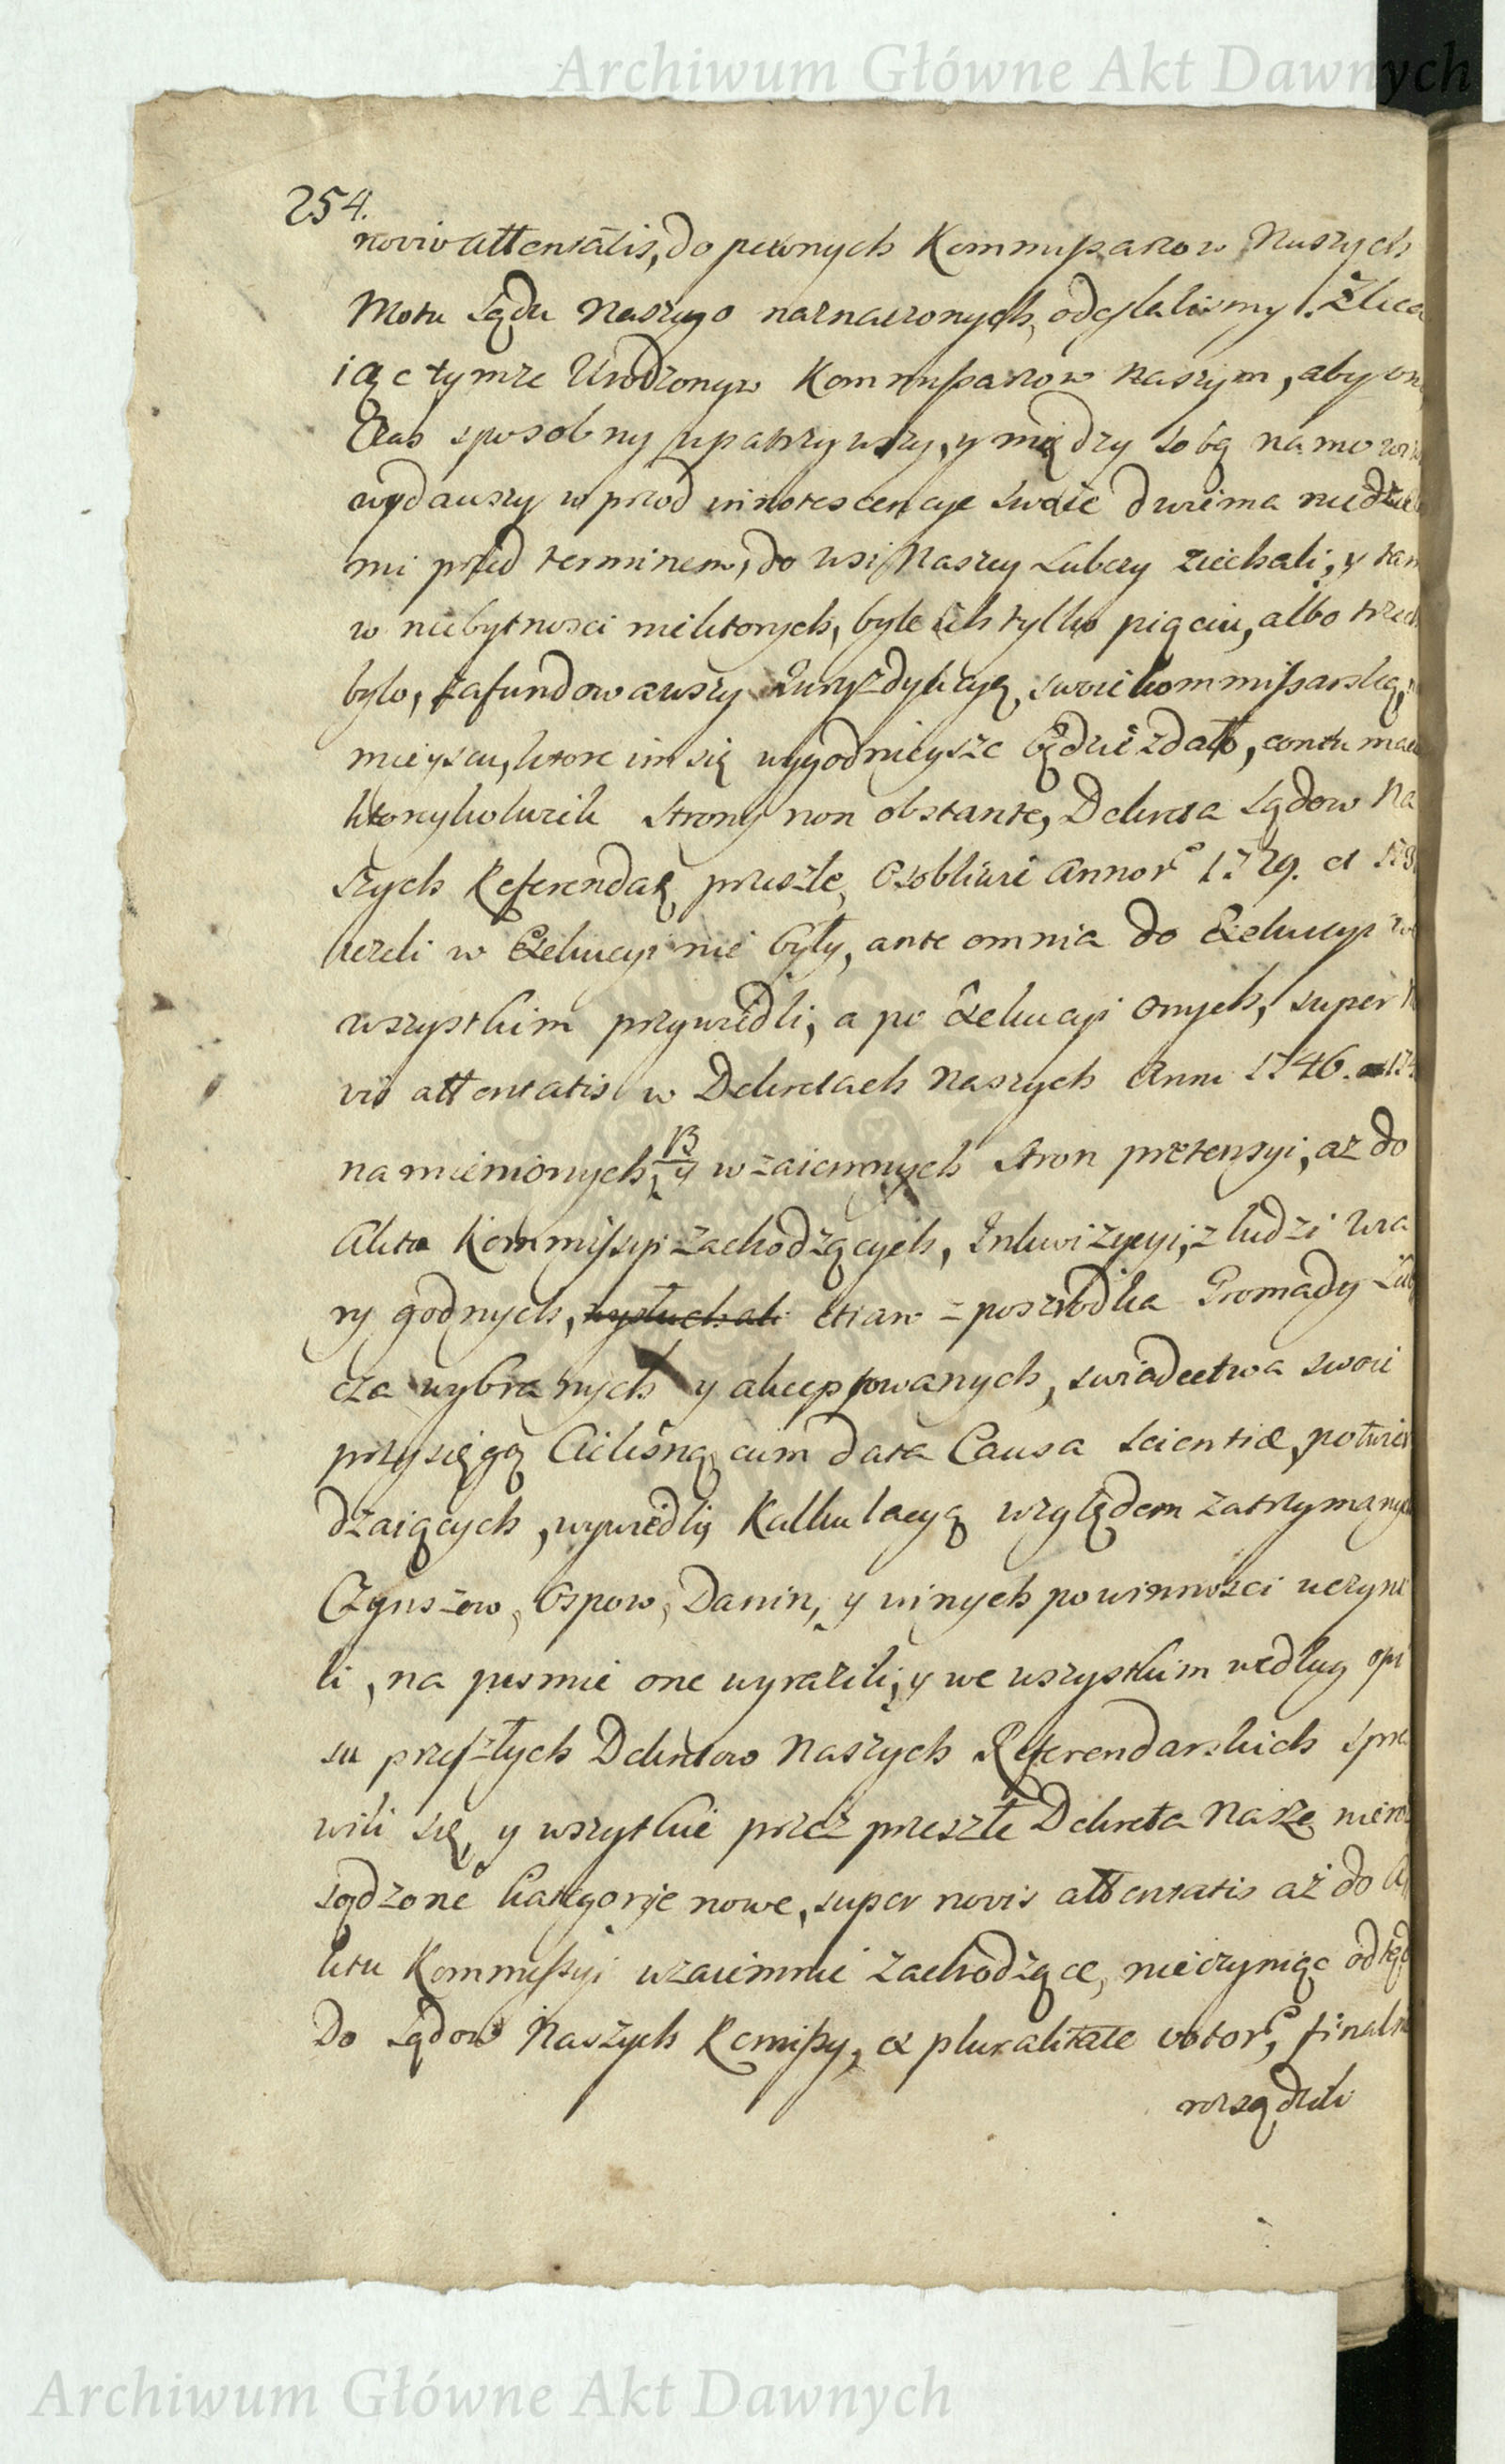 Archiwum Główne Akt Dawnych
254.
novis attentatis, do pewnych Kommissarzow Naszych
Motu Sądu Naszego naznaczonych, odesłalismy. Zleca
iąc tymże Urodzonym Kommissarzow Naszym, aby oni
Czas sposobny upatrzywszy, y między sobą namowi
wydawszy w przod innotescencye swoie dwiema niedziela
mi przed terminem, do wsi Naszey Lubczy ziechali, y tam
w niebytnosci niektorych, byle ich tylko pięciu, albo trzech
było, zafundowawszy Juryzdykcyą swoie kommissarską,
mieyscu, ktore im się wygodnieysze będzie zdało, contumac
ktoreykolwiek strony non obstante, Dekreta Sądow Na
szych Referendar. przeszłe, osobliwie Annor. 1729. et 173
ieżeli w Exekucyi nie były, ante omnia do Exekucyi we
wszystkim przywiedli, a po Exekucyi onych, super no
vis attentatis w Dekretach Naszych Anni 1746. 174
namienionych, y wzaiemnych stron pretensyi, aż do
Aktu Kommissyi zachodzących, Inkwizycyi, z ludzi wia
ry godnych, wysłuchali etiam z poszrodka Gromady Lub
cza wybranych y akceptowanych, swiadectwa swoie
przysięgą Cielesną cum data Causa scientiæ, potwier
dzaiących, wywiedli, Kalkulacyą względem zatrzymanych
Czynszow, Ospow, Danin, y innych powinnosci uczyni
li, na pismie one wyrazili, y we wszystkim według opi
su przeszłych Dekretow Naszych Referendarskich spra
wili się, y wszytkie przez przeszłe Dekreta Nasze nieroz
sądzone kategorye nowe, super novis attentatis aż do A
ktu Kommissyi wzaiemnie zachodzące, nieczyniąc odtąd
Do Sądow Naszych Remissy, ex pluralitate votor. finaln
rozsądzili
Archiwum Główne Akt Dawnych